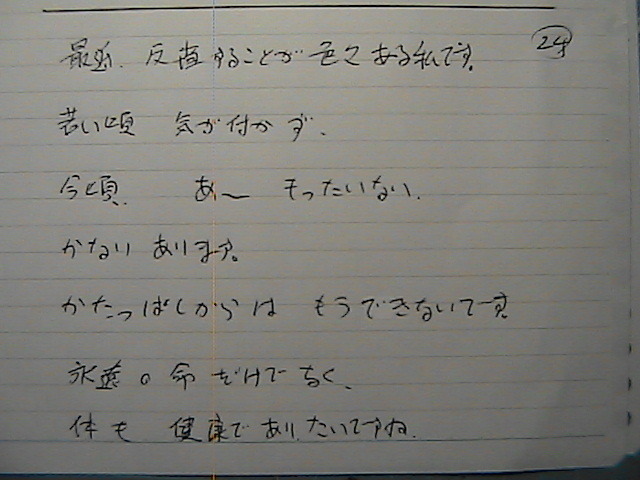 24
最近、反省することが色々ある私です。
若い頃 気が付かず、
今頃、 あ〜 もったいない、
かなり あります。
かたっぱしからは もうできないです
永遠の命だけでなく、
体も 健康で ありたいですね、